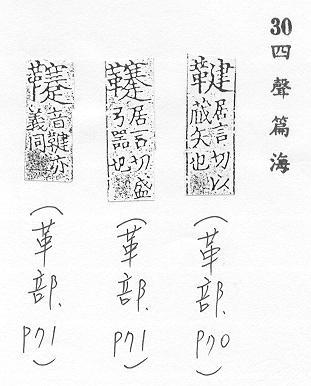 30 四聲篇海
鞬
居言切以
藏矢也
(革部. P70)
居言切盛
弓器也
(革部. P71)
音鞬亦
義同
(革部. P71)